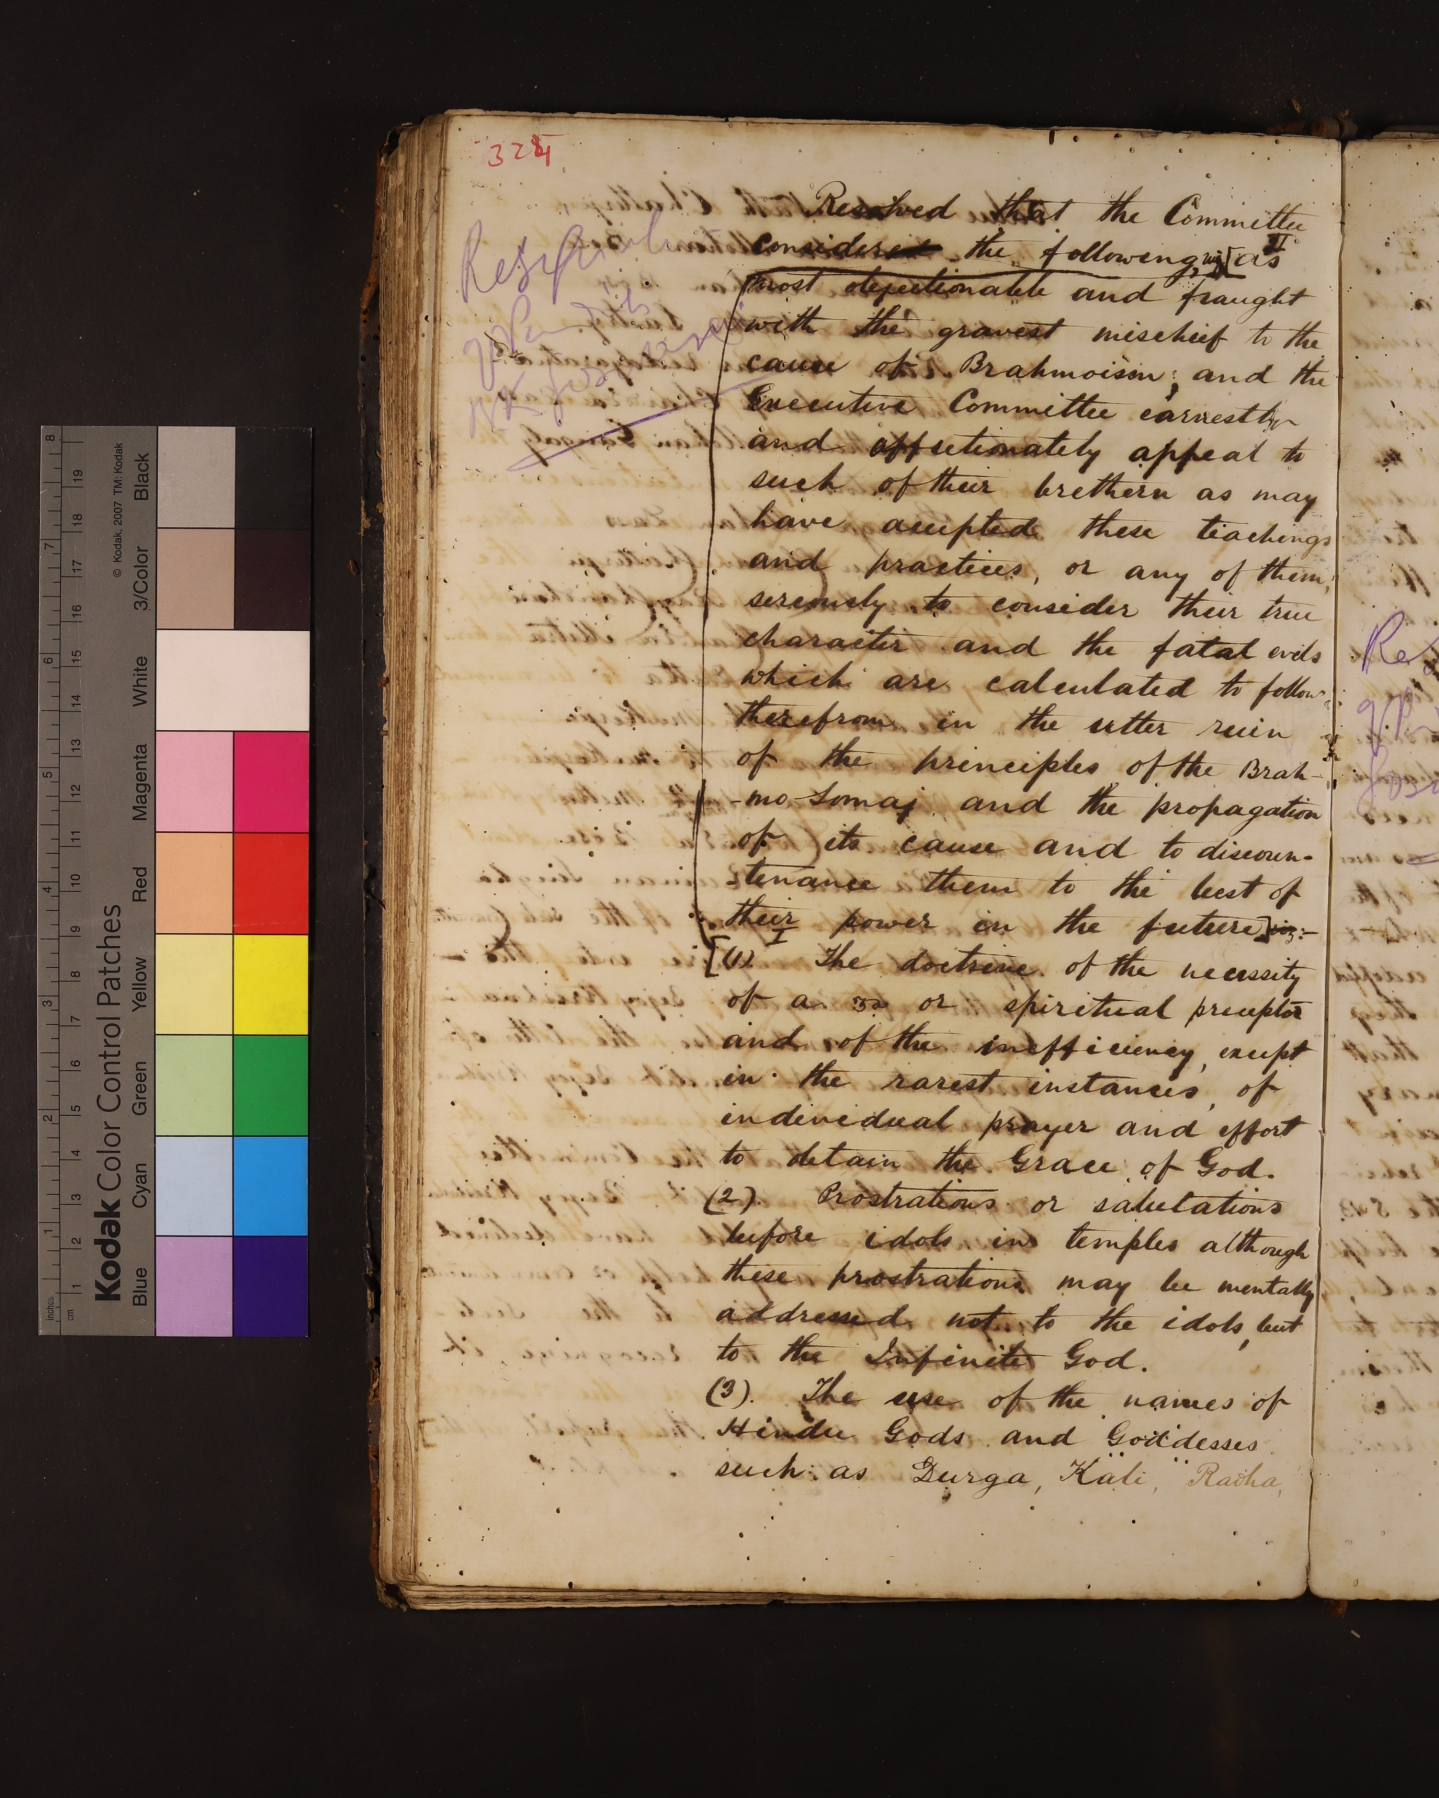 324
Resolved that the Committee
considered the following, viz [as II
most objectionable and fraught
with the gravest mischief to the
cause of Brahmoism; and the
Executive Committee earnestly
and affectionately appeal to
such of their brethern as may
have accepted these teachings
and practices, or any of them,
seriously to consider their true
character and the fatal evils
which are calculated to follow
therefrom in the utter ruin
of the principles of the Brah-
-mo Somaj and the propagation
of its cause and to discoun-
tenance them to the best of
their power in the future] viz:-
I
[(1) The doctrine of the necessity
of a or spiritual preceptor
and of the inefficiency, except
in the rarest instances, of
individual prayer and effort
to obtain the Grace of God.
(2) Prostrations or salutations
before idols in temples although
these prostrations may be mentally
addressed not to the idols, but
to the Infinite God.
(3). The use of the names of
Hindu Gods and Goddesses
such as Durga, Kali, Radha,
Kodak Color Control Patches
© Kodak, 2007 TM: Kodak
Blue Cyan Green Yellow Red Magenta White 3/Color Black
inches 1 2 3 4 5 6 7 8
cm 1 2 3 4 5 6 7 8 9 10 11 12 13 14 15 16 17 18 19